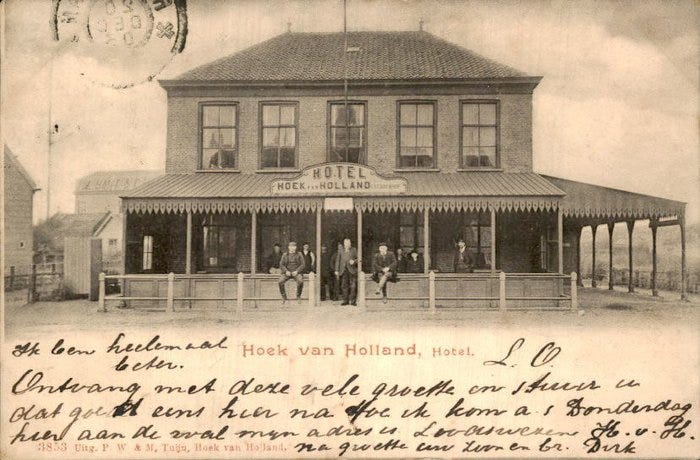 HOTEL
HOEK VAN HOLLAND
Hoek van Holland, Hotel.
Ik ben heelemaal
beter.
L O
Ontvang met deze vele groette en stuur u
dat goed eins hier na toe ik kom a s Donderdag
hier aan de wal mijn adres is Loodswezen H. v. H.
3853 Uitg. P. W & M, Tuijn, Hoek van Holland.
na groette uw Zoon en br. Dirk